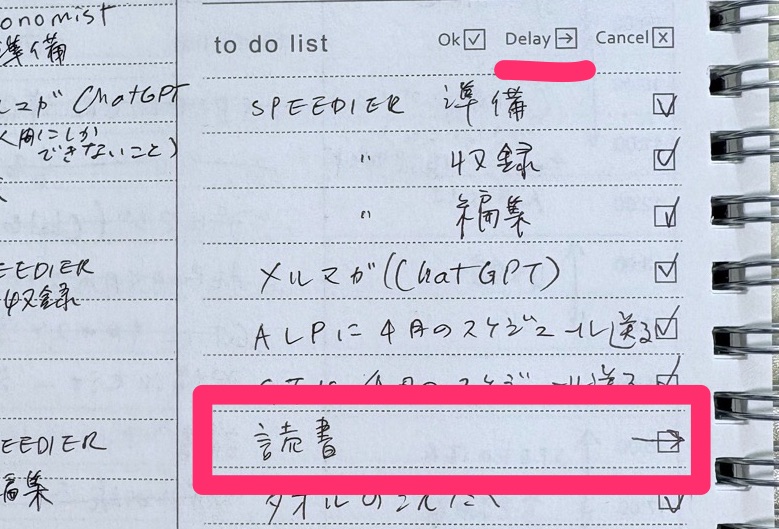 onomist
準備
ルマガ ChatGPT
(人間にしか
できないこと)
EEDIER
収録
EEDIER
編集
to do list Ok Delay → Cancel x
SPEEDIER 準備
〃 収録
〃 編集
メルマガ(ChatGPT)
ALPに4月のスケジュール送る
に4月のスケジュール送る
読書 →
タオルのせんたく